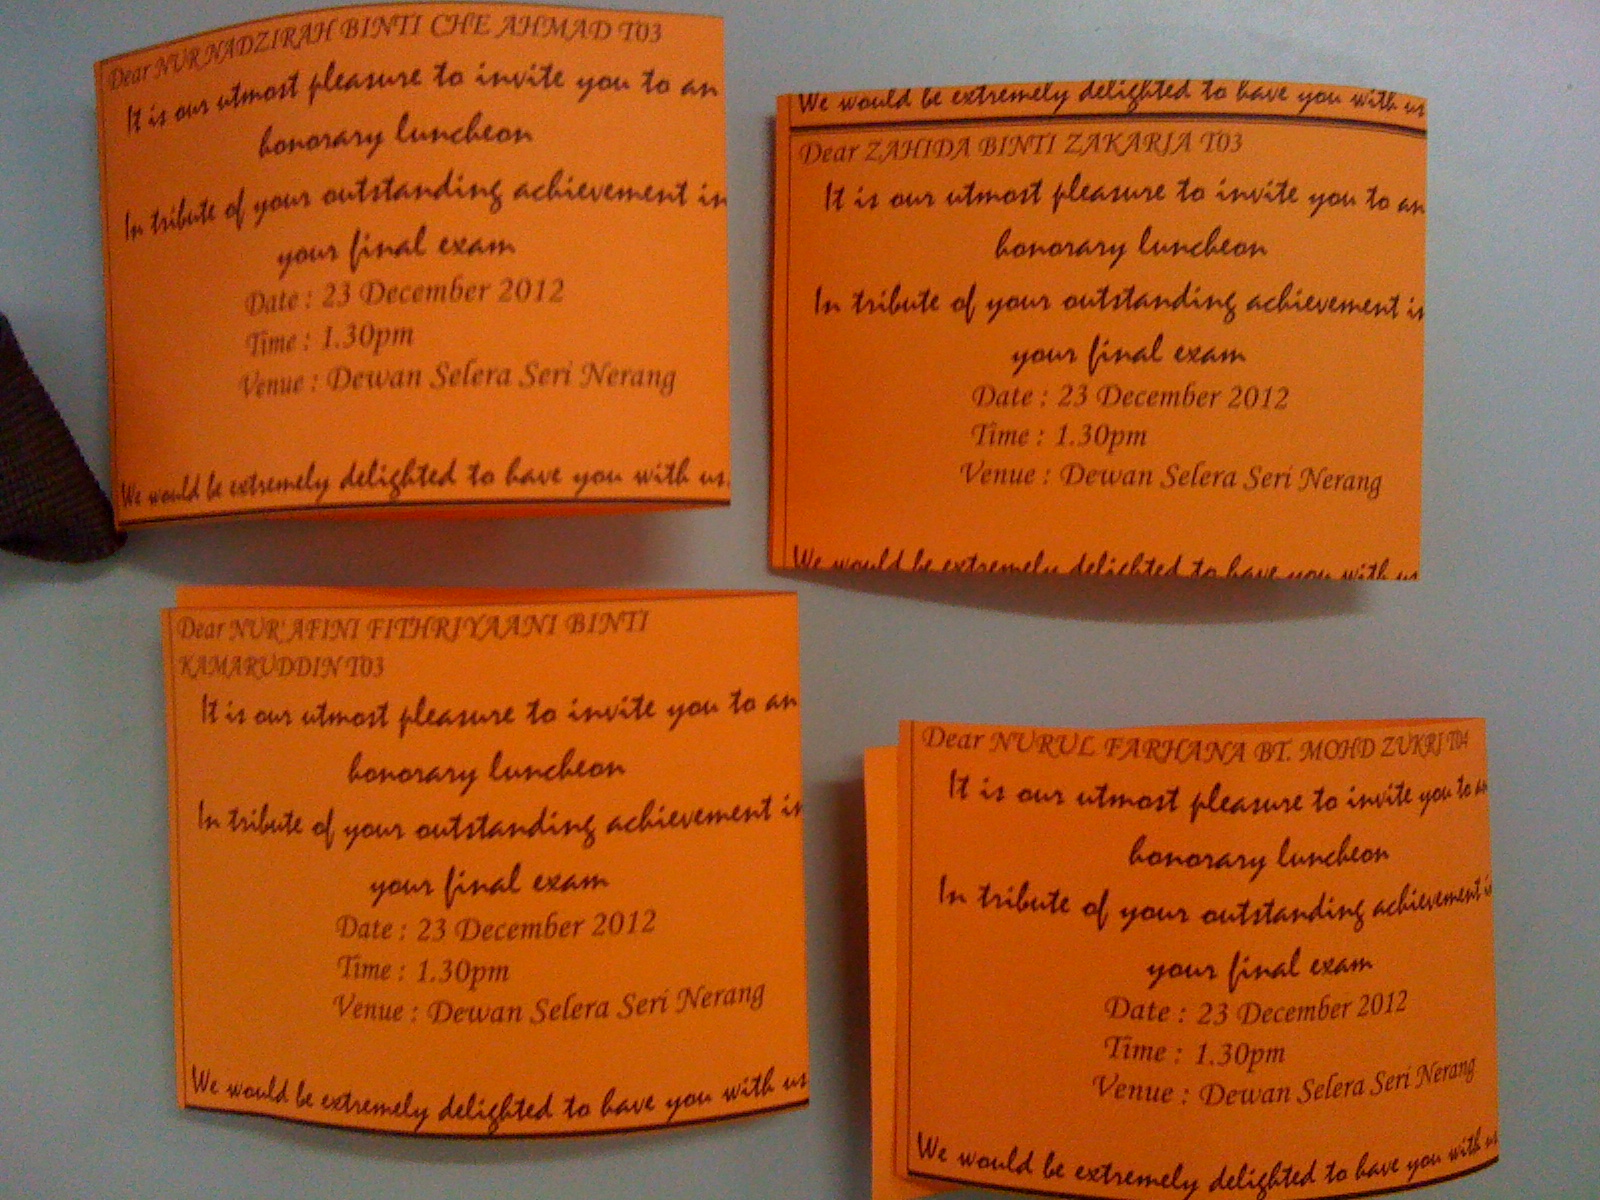 Dear NUR NADZIRAH BINTI CHE AHMAD T03
It is our utmost pleasure to invite you to an
honorary luncheon
In tribute of your outstanding achievement in
your final exam
Date : 23 December 2012
Time : 1.30pm
Venue : Dewan Selera Seri Nerang
We would be extremely delighted to have you with us.
We would be extremely delighted to have you with us
Dear ZAHIDA BINTI ZAKARIA T03
It is our utmost pleasure to invite you to an
honorary luncheon
In tribute of your outstanding achievement in
your final exam
Date : 23 December 2012
Time : 1.30pm
Venue : Dewan Selera Seri Nerang
We would be extremely delighted to have you with us
Dear NUR'AFINI FITHRIYAANI BINTI
KAMARUDDIN T03
It is our utmost pleasure to invite you to an
honorary luncheon
In tribute of your outstanding achievement in
your final exam
Date : 23 December 2012
Time : 1.30pm
Venue : Dewan Selera Seri Nerang
We would be extremely delighted to have you with us
Dear NURUL FARHANA BT. MOHD ZUKRI T04
It is our utmost pleasure to invite you to an
honorary luncheon
In tribute of your outstanding achievement in
your final exam
Date : 23 December 2012
Time : 1.30pm
Venue : Dewan Selera Seri Nerang
We would be extremely delighted to have you with us